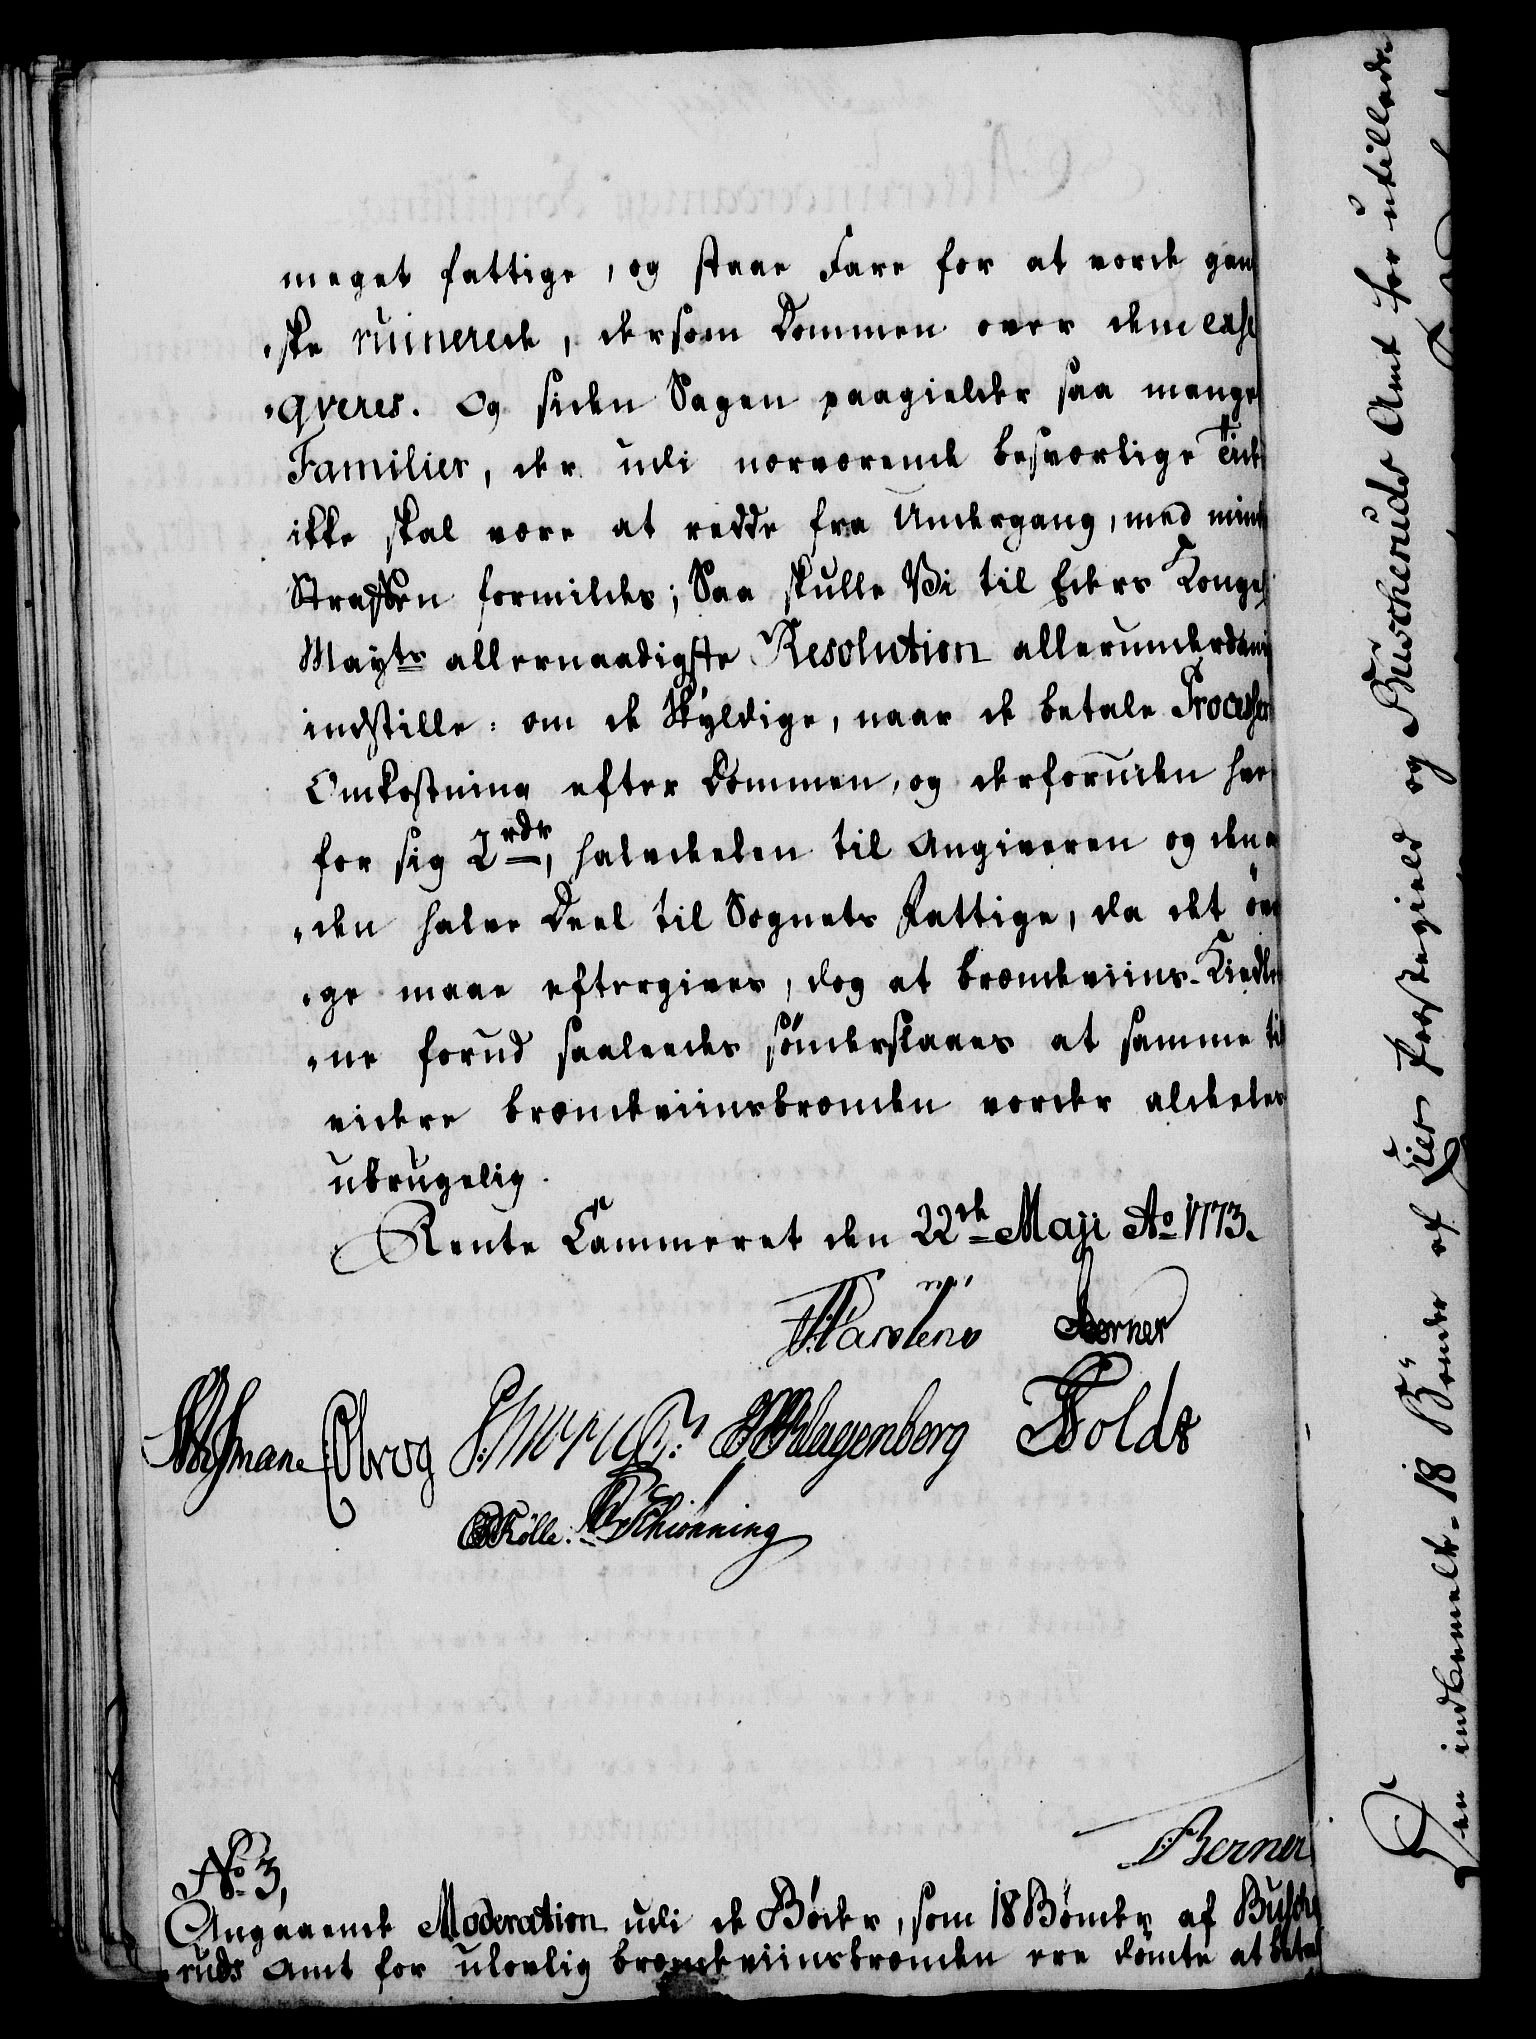 meget fattige, og staae Fare for at vorde gan
ske ruinerede, dersom Dommen over dem exse
qveres. Og siden Sagen paagielder saa mange
Familier, der udi nærværende besværlige Tiid
ikke skal være at redde fra Undergang, med mind
Straffen formildes; Saa skulle Vi til Eders Kongel
Mayts allernaadigste Resolution allerunderdanig
indstille: om de Skyldige, naar de betale Processens
Omkostning efter Dommen, og derforuden hver
for sig 2 rdr, halvedelen til Angiveren og den an
den halve Deel til Sognets Fattige, da det øvri
ge maae eftergives, dog at brændeviins-Kiedler
ne forud saaledes sønderslaaes at samme til
videre brændeviinsbrænden vorder aldeeles
ubrugelig.
Rente Cammeret den 22de Maji Ao 1773.
Berner
Klagenberg Holdt
Schiønning
Berner
No. 3,
Angaaende Moderation udi de Bøder, som 18 Bønder af Busche
ruds Amt for ulovlig brændeviinsbrænden ere dømte at betal
Den indbemelte 18 Bønder af Lier Præstegield og Buscheruds Amt for utilladt